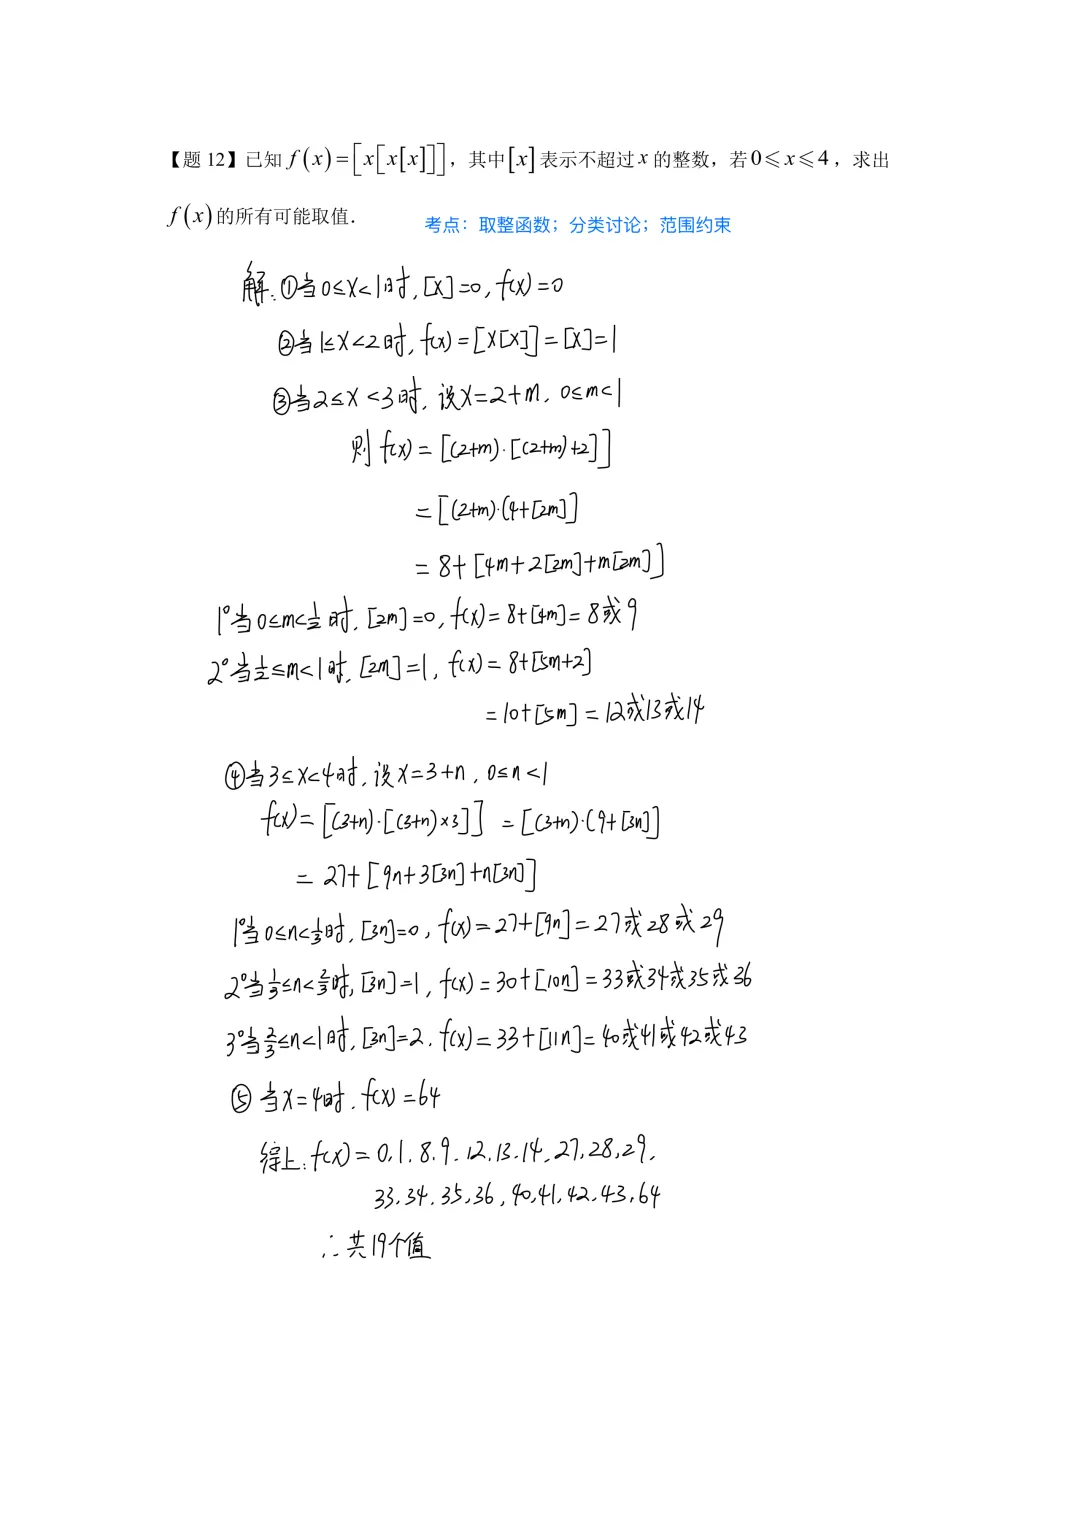 【题 12】已知 f(x)=[x[x[x]]]，其中[x]表示不超过 x 的整数，若 0≤x≤4，求出
f(x)的所有可能取值．
考点：取整函数；分类讨论；范围约束
解：①当0≤x<1时，[x]=0，f(x)=0
②当1≤x<2时，f(x)=[x[x]]=[x]=1
③当2≤x<3时，设x=2+m，0≤m<1
则 f(x)=[(2+m)·[(2+m)+2]]
=[(2+m)·(4+[2m]]
=8+[4m+2[2m]+m[2m]]
1°当0≤m<1/2时，[2m]=0，f(x)=8+[4m]=8或9
2°当1/2≤m<1时，[2m]=1，f(x)=8+[5m+2]
=10+[5m]=12或13或14
④当3≤x<4时，设x=3+n，0≤n<1
f(x)=[(3+n)·[(3+n)×3]]=[(3+n)·(9+[3n]]
=27+[9n+3[3n]+n[3n]]
1°当0≤n<1/3时，[3n]=0，f(x)=27+[9n]=27或28或29
2°当1/3≤n<2/3时，[3n]=1，f(x)=30+[10n]=33或34或35或36
3°当2/3≤n<1时，[3n]=2．f(x)=33+[11n]=40或41或42或43
⑤当x=4时．f(x)=64
综上：f(x)=0,1,8,9,12,13,14,27,28,29,
33,34,35,36,40,41,42,43,64
∴共19个值